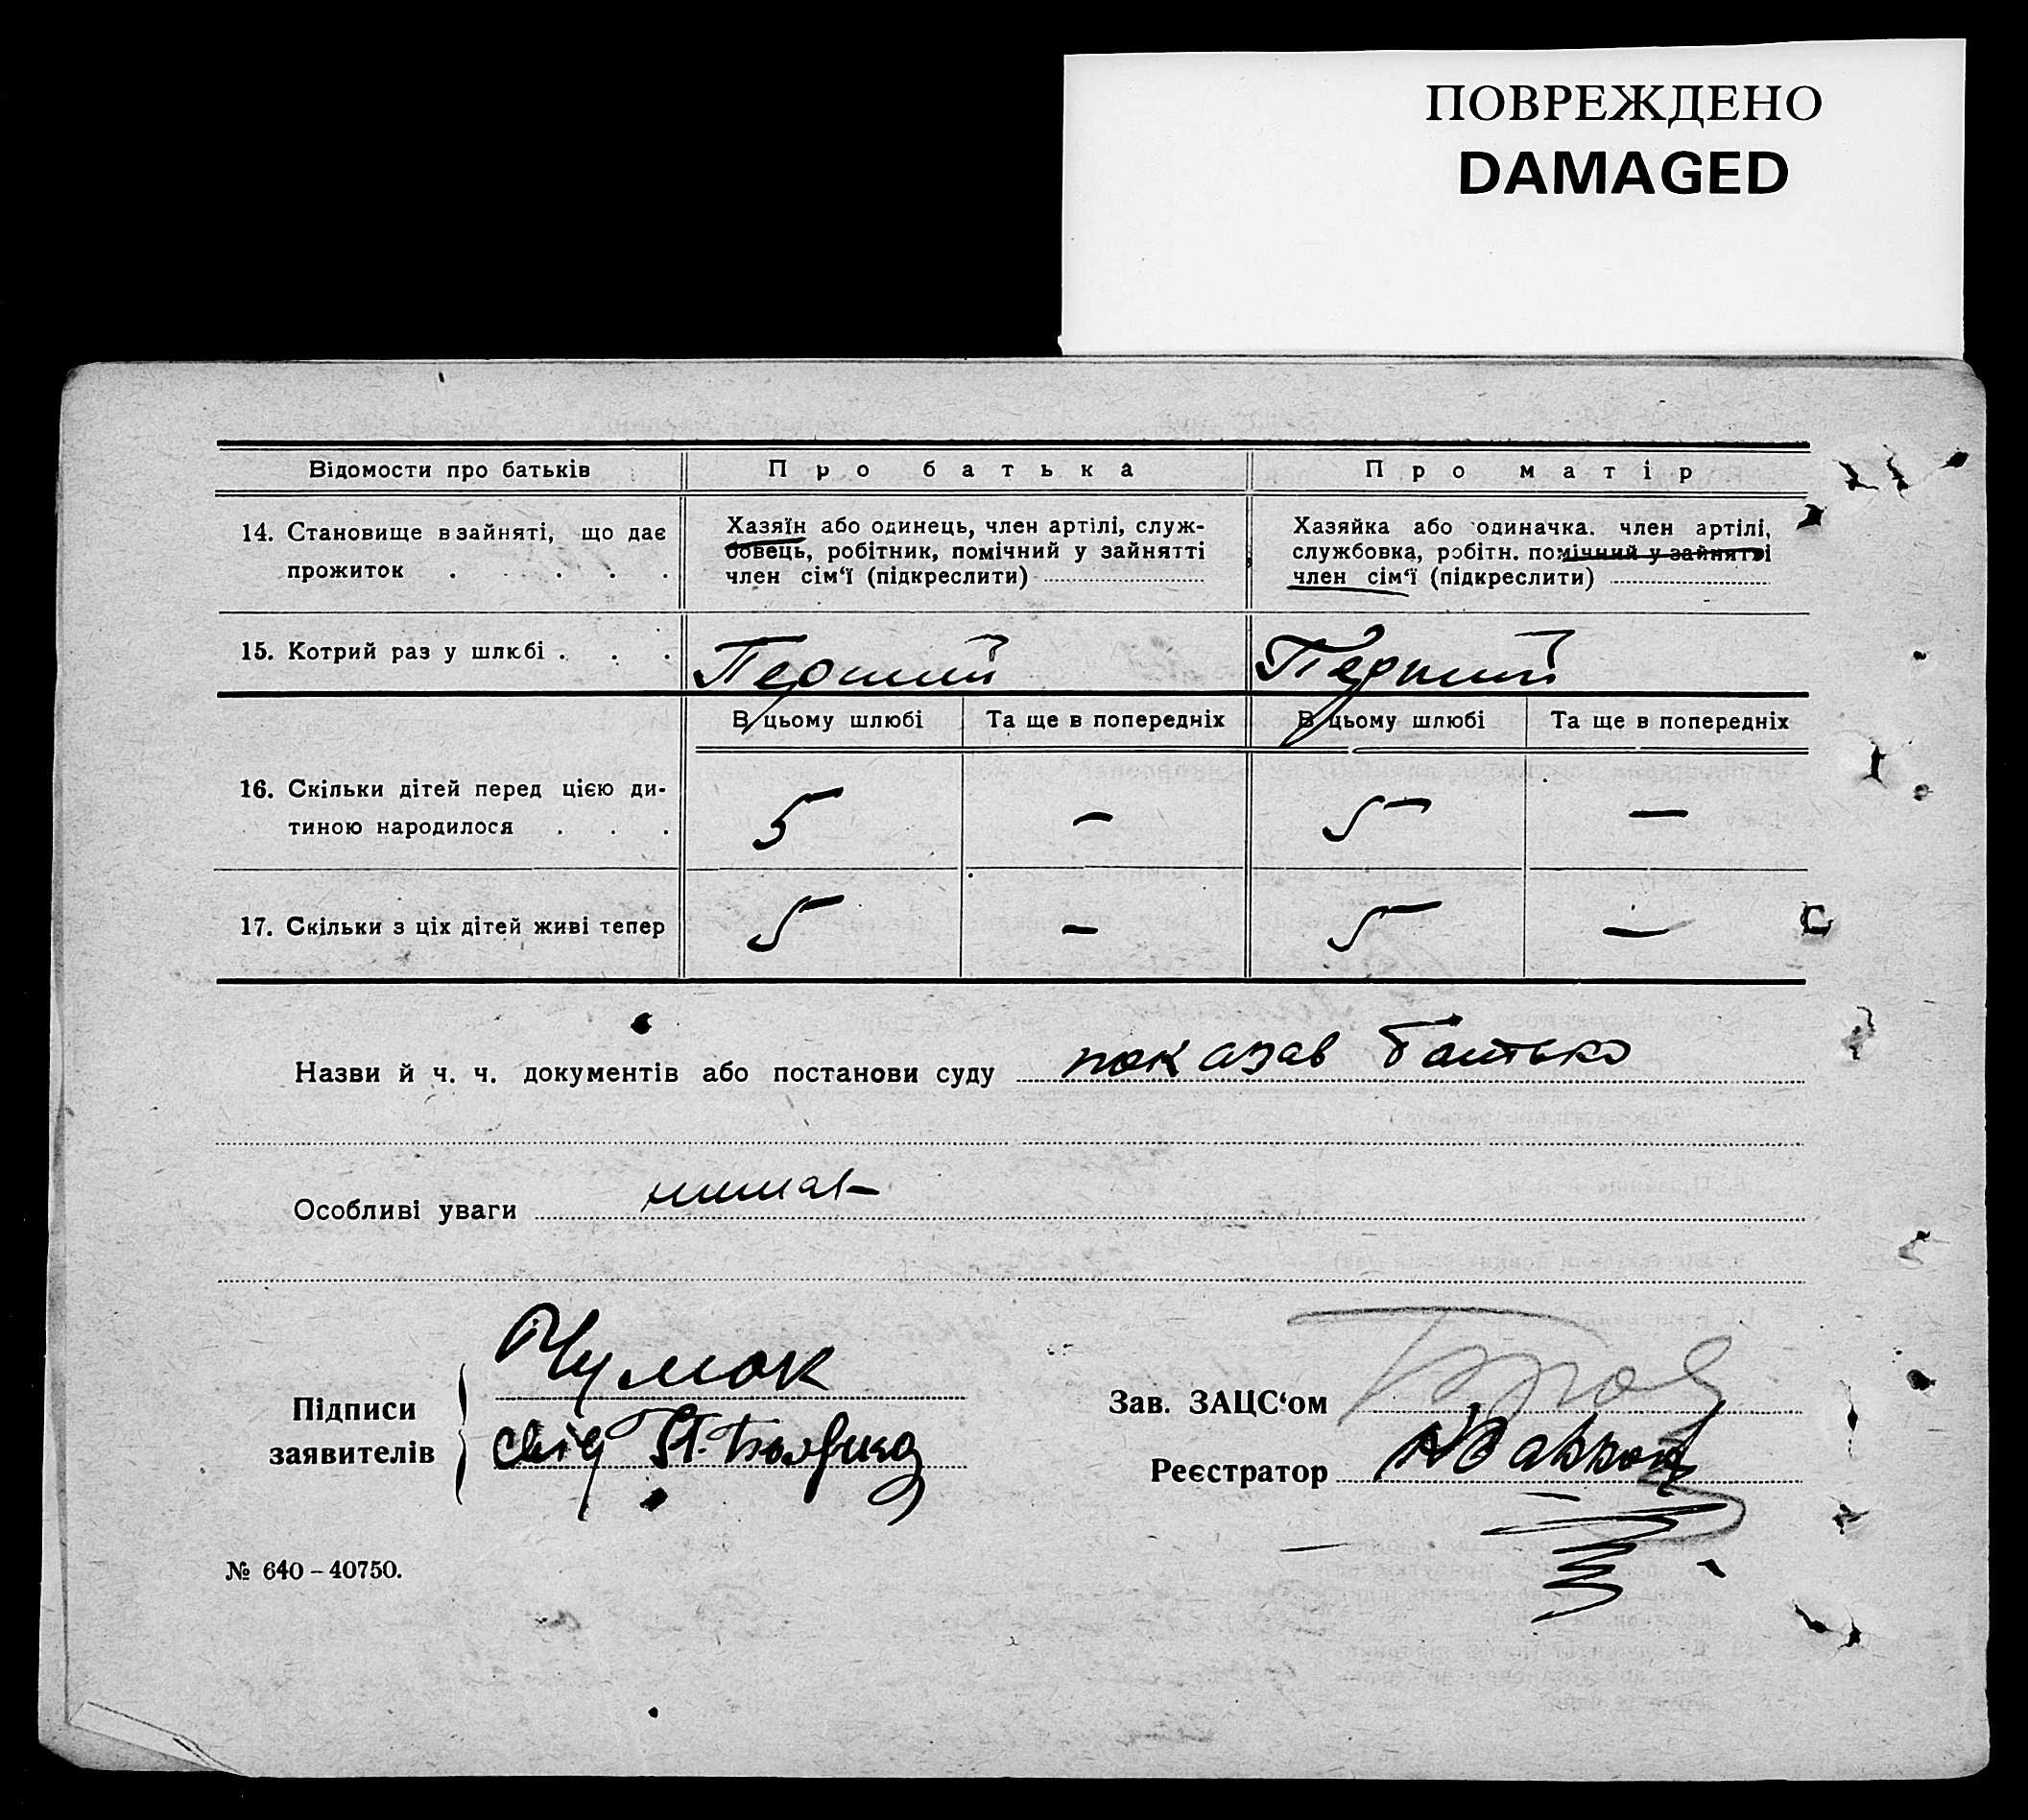 ПОВРЕЖДЕНО
DAMAGED
Відомости про батьків
Про батька
Про матір
14. Становище в зайняті, що дає
прожиток . . . . .
Хазяїн або одинець, член артілі, служ-
бовець, робітник, помічний у зайнятті
член сім‘ї (підкреслити)
Хазяйка або одиначка. член артілі,
службовка, робітн. помічний у зайнятті
член сім‘ї (підкреслити)
15. Котрий раз у шлюбі . . .
Перший
Перший
В цьому шлюбі
Та ще в попередніх
В цьому шлюбі
Та ще в попередніх
16. Скільки дітей перед цією ди-
тиною народилося . . .
5
–
5
–
17. Скільки з ціх дітей живі тепер
5
–
5
–
Назви й ч. ч. документів або постанови суду показав батько
Особливі уваги немає
Підписи
заявителів
Чумок
свід
Зав. ЗАЦС‘ом
Реєстратор
№ 640 – 40750.